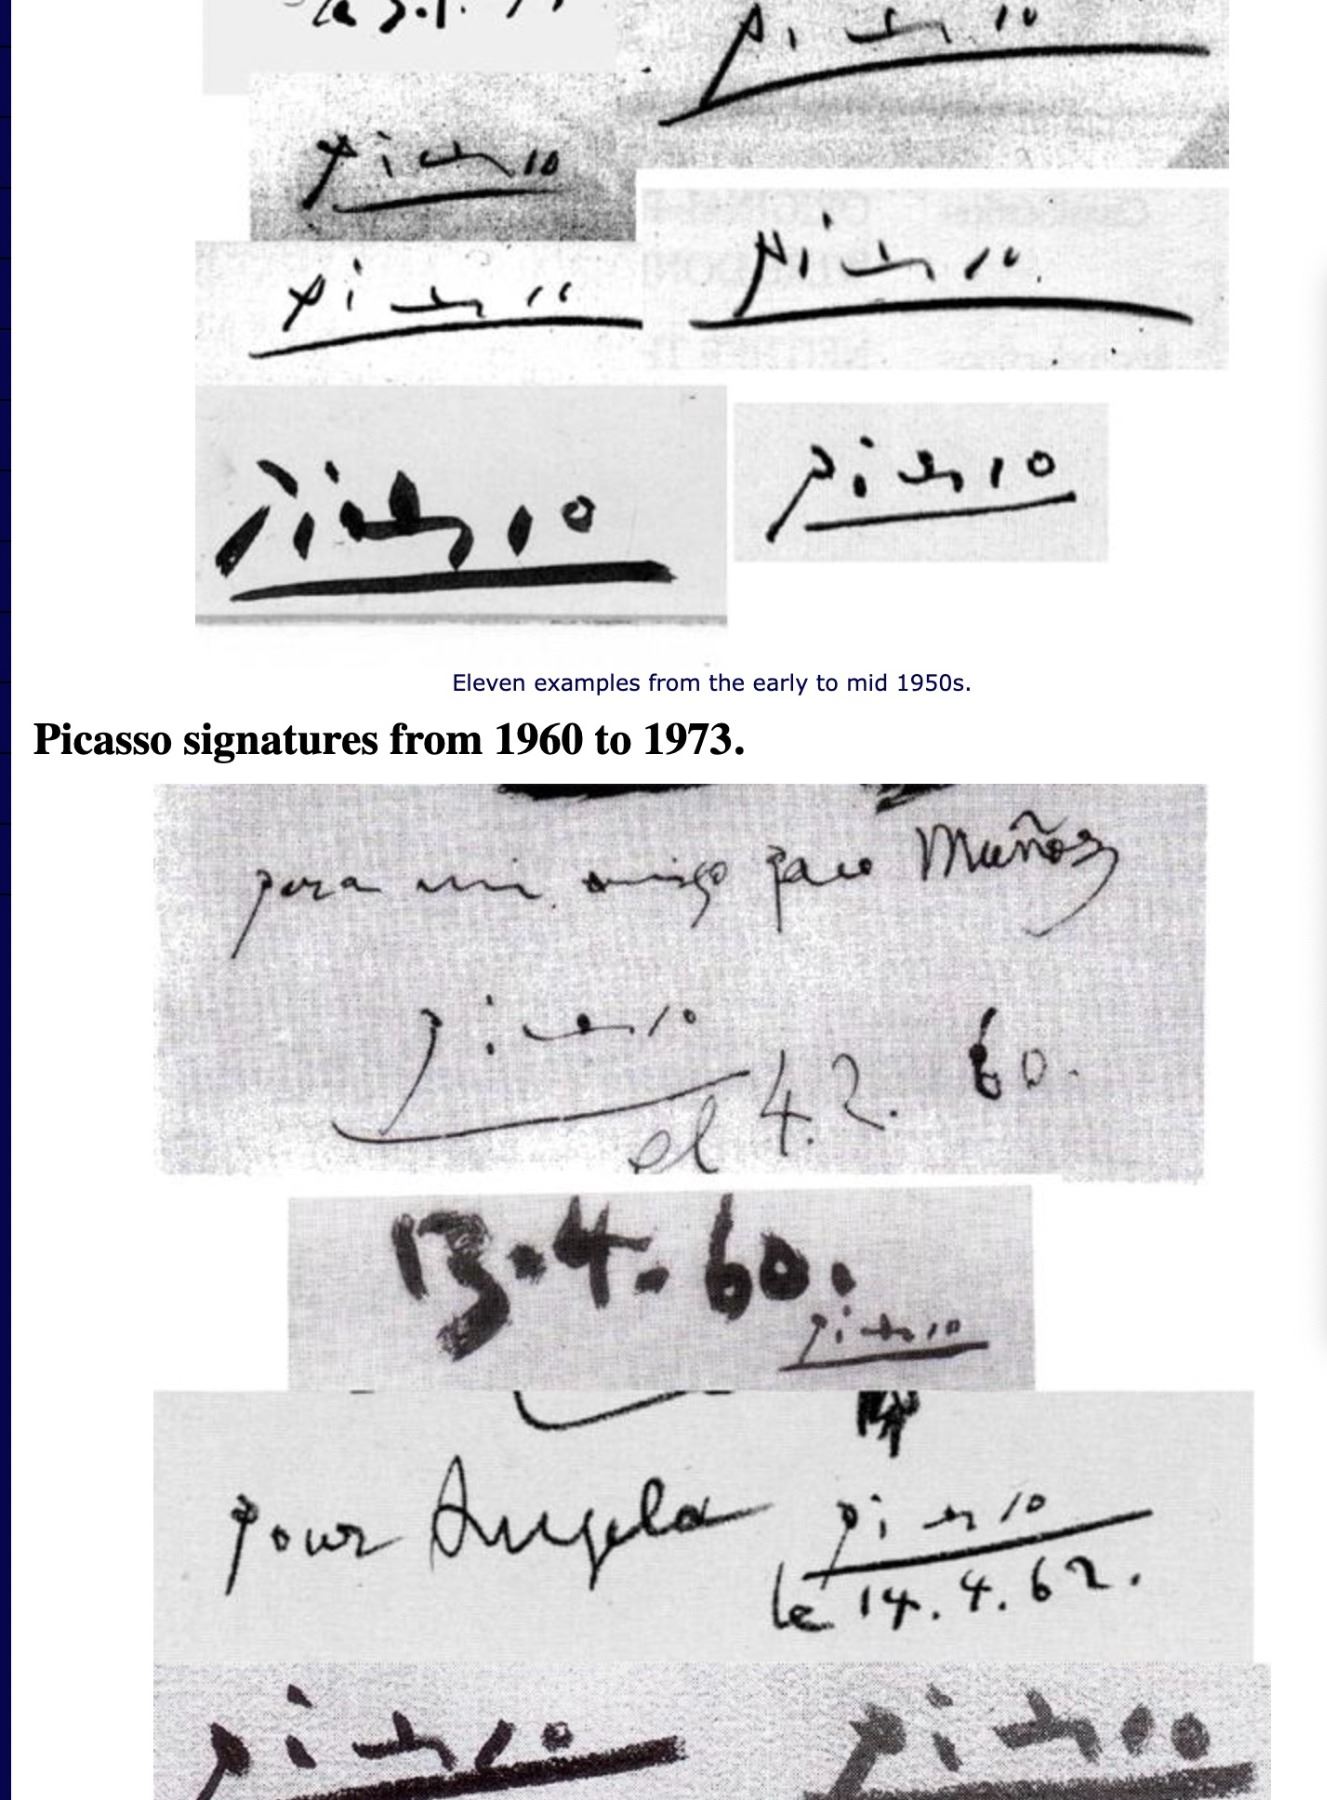 Picasso
Picasso
Picasso
Picasso
Picasso
Picasso
Eleven examples from the early to mid 1950s.
Picasso signatures from 1960 to 1973.
para mi amigo paco Muñoz
Picasso
el 4.2. 60.
13.4.60.
Picasso
pour Angela
Picasso
le 14.4.62.
Picasso
Picasso